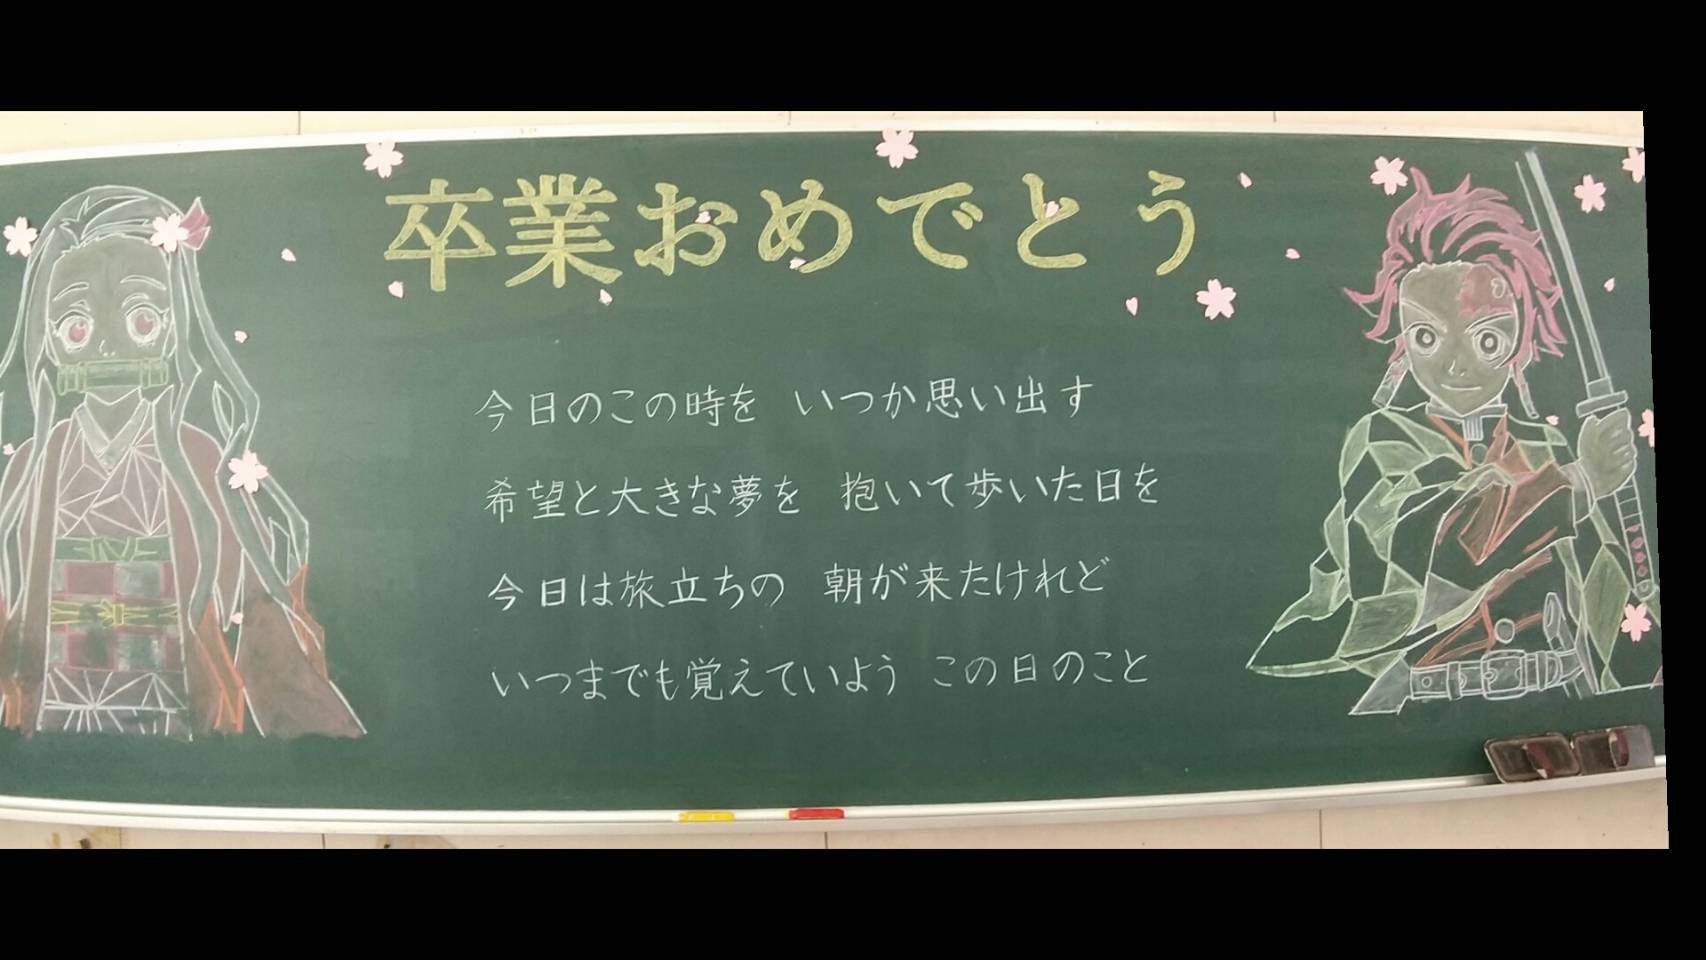 卒業おめでとう
今日のこの時を　いつか思い出す
希望と大きな夢を　抱いて歩いた日を
今日は旅立ちの　朝が来たけれど
いつまでも覚えていよう　この日のこと